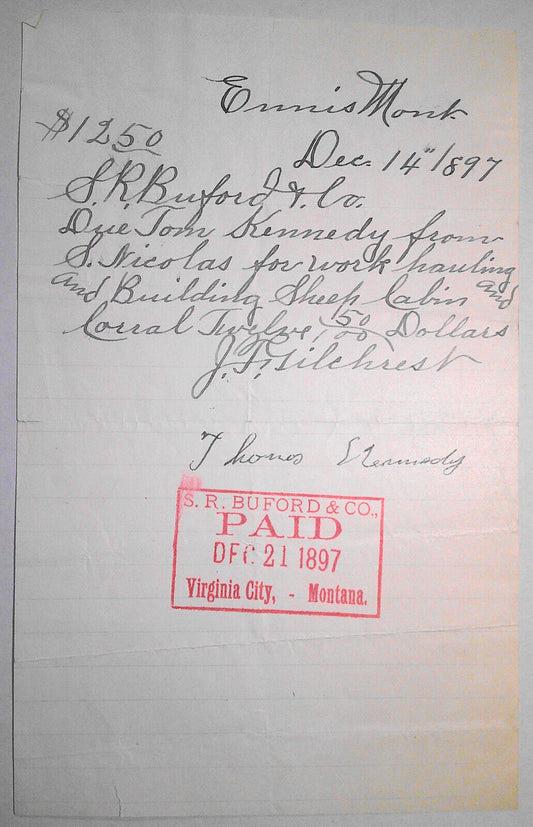 Ennis Mont
$12 50
Dec. 14" 1897
S. R. Buford & Co.
Due Tom Kennedy from
S. Nicolas for work hauling
and Building Sheep Cabin and
Corral Twelve, 50/00 Dollars
J. F. Gilchrest
Thomos Kennedy
S. R. BUFORD & CO.,
PAID
DEC 21 1897
Virginia City, - Montana.